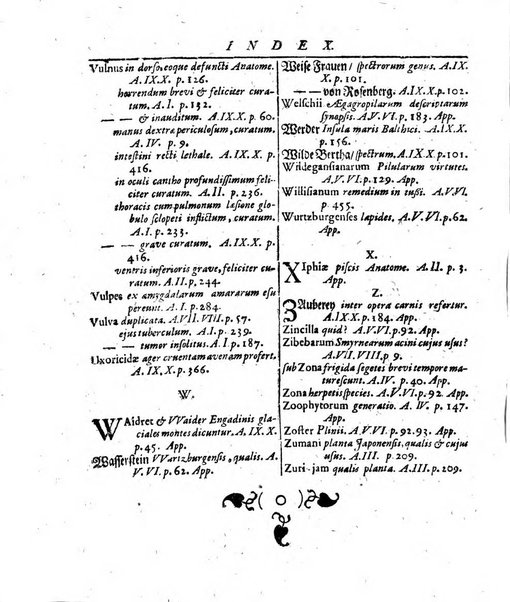 INDEX.
Vulnus in dorso, eoque defuncti Anatome.
A. IX. X. p. 126.
horrendum brevi & feliciter cura-
tum. A. I. p. 132.
— — & inauditum. A. IX. X. p. 60.
manus dextræ periculosum, curatum.
A. IV. p. 9.
intestini recti lethale. A. IX. X. p.
416.
in oculi cantho profundissimum feli-
citer curatum. A. II. p. 236.
thoracis cum pulmonum læsione glo-
bulo sclopeti inflictum, curatum.
A. I. p. 233.
— — grave curatum. A. IX. X. p.
416.
ventris inferioris grave, feliciter cu-
ratum. A. II. p. 244.
Vulpes ex amygdalarum amararum esu
pereunt. A. I. p. 284.
Vulva duplicata. A. VII. VIII. p. 57.
ejus tuberculum. A. I. p. 239.
— — tumor insolitus. A. I. p. 187.
Uxoricidæ ager cruentam avenam profert.
A. IX. X. p. 366.
W.
WAidret & VVaider Engadinis gla-
ciales montes dicuntur. A. IX. X.
p. 45. App.
Wasserstein VVartzburgensis, qualis. A.
V. VI. p. 62. App.
Weise Frauen / spectrorum genus. A. IX.
X. p. 101.
— — von Rosenberg. A. IX. X. p. 102.
Welschii Ægagropilarum descriptarum
synapsis. A. V. VI. p. 183. App.
Werder Insula maris Balthici. A. IX. X.
p. 156.
Wilde Bertha / spectrum. A. IX. X. p. 101.
Wildegansianarum Pilularum virtutes.
A. V. VI. p. 129. App.
Willisianum remedium in tussi. A. V. VI.
p. 455.
Wurtzburgenses lapides. A. V. VI. p. 62.
App.
X.
XIphiæ piscis Anatome. A. II. p. 3.
App.
Z.
ZAuberey inter opera carnis refertur.
A. IX. X. p. 184. App.
Zincilla quid? A. V. VI. p. 92. App.
Zibebarum Smyrnearum acini cujus usus?
A. VII. VIII. p 9.
sub Zona frigida segetes brevi tempore ma-
turescunt. A. IV. p. 40. App.
Zona herpetis species. A. V. VI. p. 92. App.
Zoophytorum generatio. A. IV. p. 147.
App.
Zoster Plinii. A. V. VI. p. 92. 93. App.
Zumani planta Japonensis, qualis & cujus
usus. A. III. p. 209.
Zuri-jam qualis planta. A. III. p. 209.